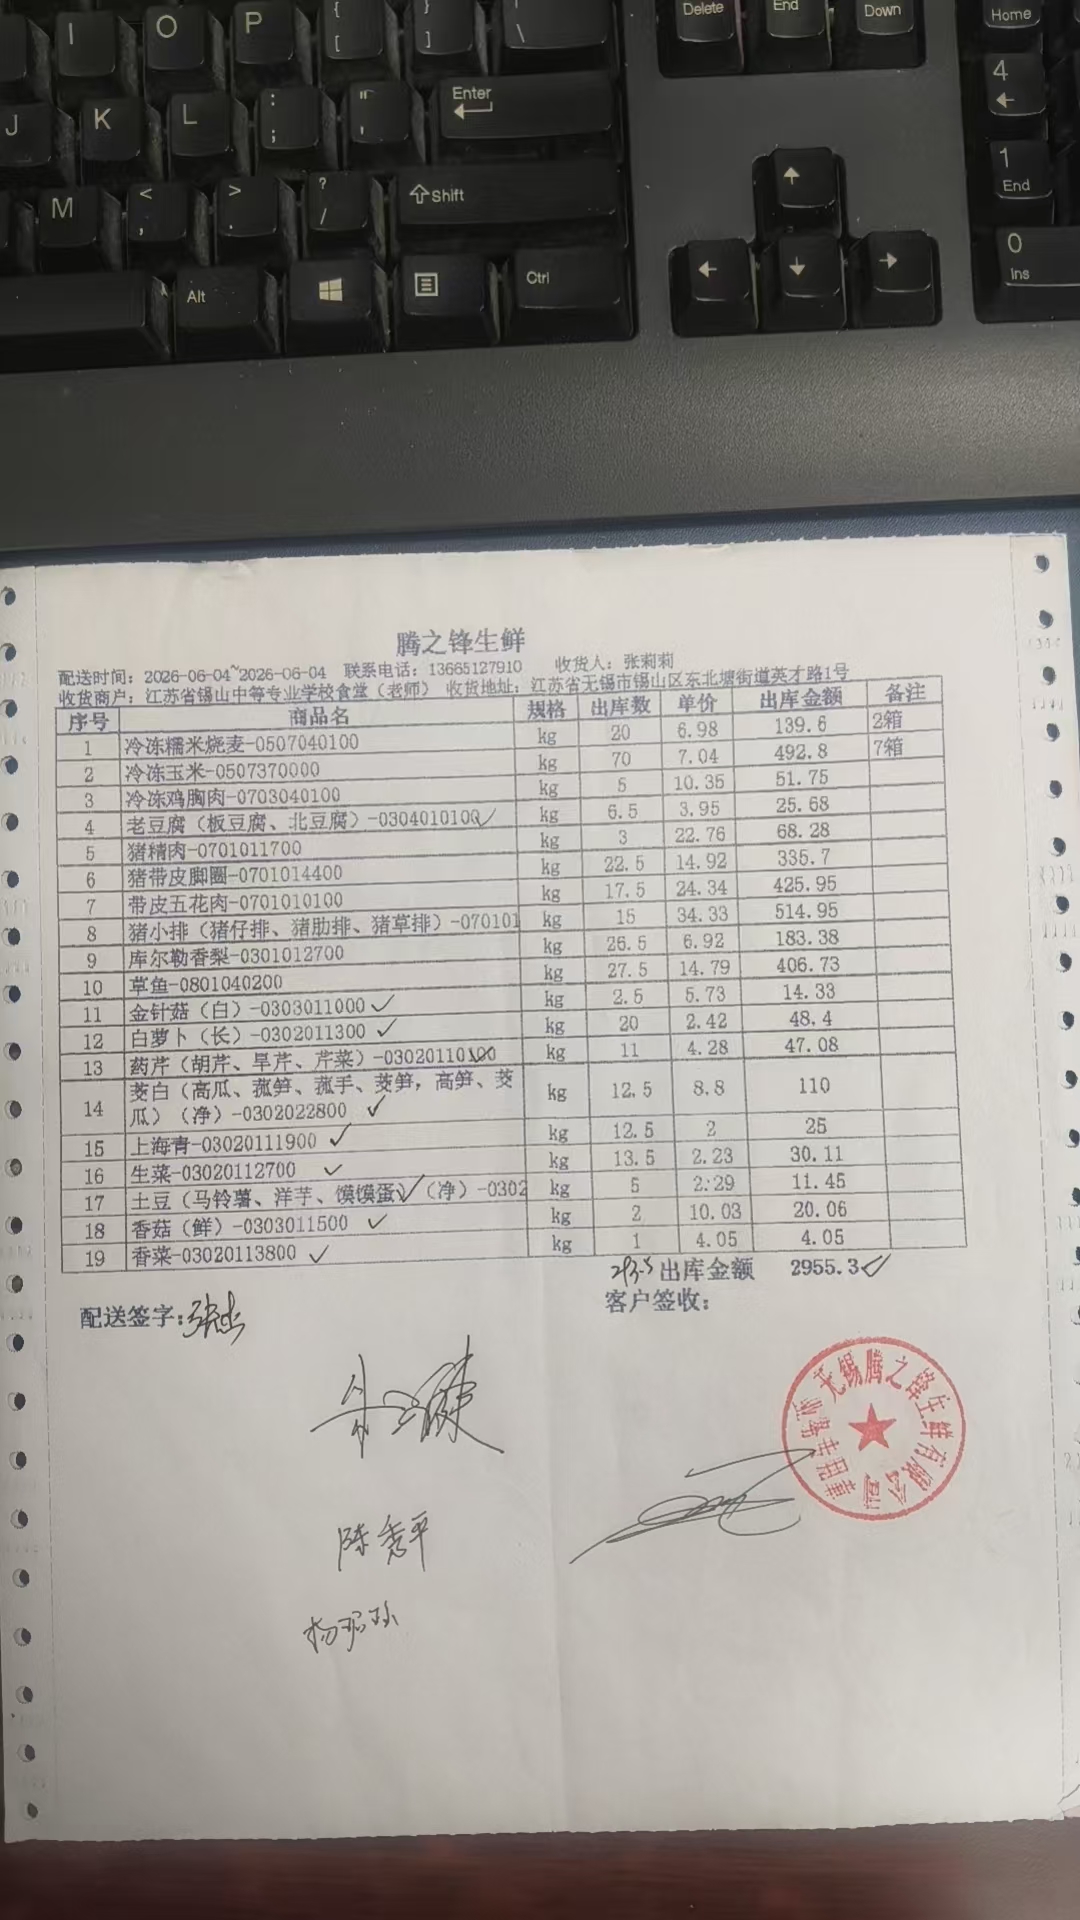 I O P { [ } ] | \ Delete End Down Home
J K L : ; " ' Enter 4
M < , > . ? / Shift 1 End
Alt Ctrl 0 Ins
腾之锋生鲜
配送时间：2026-06-04~2026-06-04 联系电话：13665127910 收货人：张莉莉
收货商户：江苏省锡山中等专业学校食堂（老师） 收货地址：江苏省无锡市锡山区东北塘街道英才路1号
序号 商品名 规格 出库数 单价 出库金额 备注
1 冷冻糯米烧麦-0507040100 kg 20 6.98 139.6 2箱
2 冷冻玉米-0507370000 kg 70 7.04 492.8 7箱
3 冷冻鸡胸肉-0703040100 kg 5 10.35 51.75
4 老豆腐（板豆腐、北豆腐）-0304010100 kg 6.5 3.95 25.68
5 猪精肉-0701011700 kg 3 22.76 68.28
6 猪带皮脚圈-0701014400 kg 22.5 14.92 335.7
7 带皮五花肉-0701010100 kg 17.5 24.34 425.95
8 猪小排（猪仔排、猪肋排、猪草排）-070101 kg 15 34.33 514.95
9 库尔勒香梨-0301012700 kg 26.5 6.92 183.38
10 草鱼-0801040200 kg 27.5 14.79 406.73
11 金针菇（白）-0303011000 kg 2.5 5.73 14.33
12 白萝卜（长）-0302011300 kg 20 2.42 48.4
13 药芹（胡芹、旱芹、芹菜）-03020110100 kg 11 4.28 47.08
14 茭白（高瓜、菰笋、菰手、茭笋，高笋、茭
瓜）（净）-0302022800 kg 12.5 8.8 110
15 上海青-03020111900 kg 12.5 2 25
16 生菜-03020112700 kg 13.5 2.23 30.11
17 土豆（马铃薯、洋芋、馍馍蛋）（净）-0302 kg 5 2.29 11.45
18 香菇（鲜）-0303011500 kg 2 10.03 20.06
19 香菜-03020113800 kg 1 4.05 4.05
293.5 出库金额 2955.3
配送签字： 客户签收：
无锡腾之锋生鲜有限公司
业务专用章
陈秀平